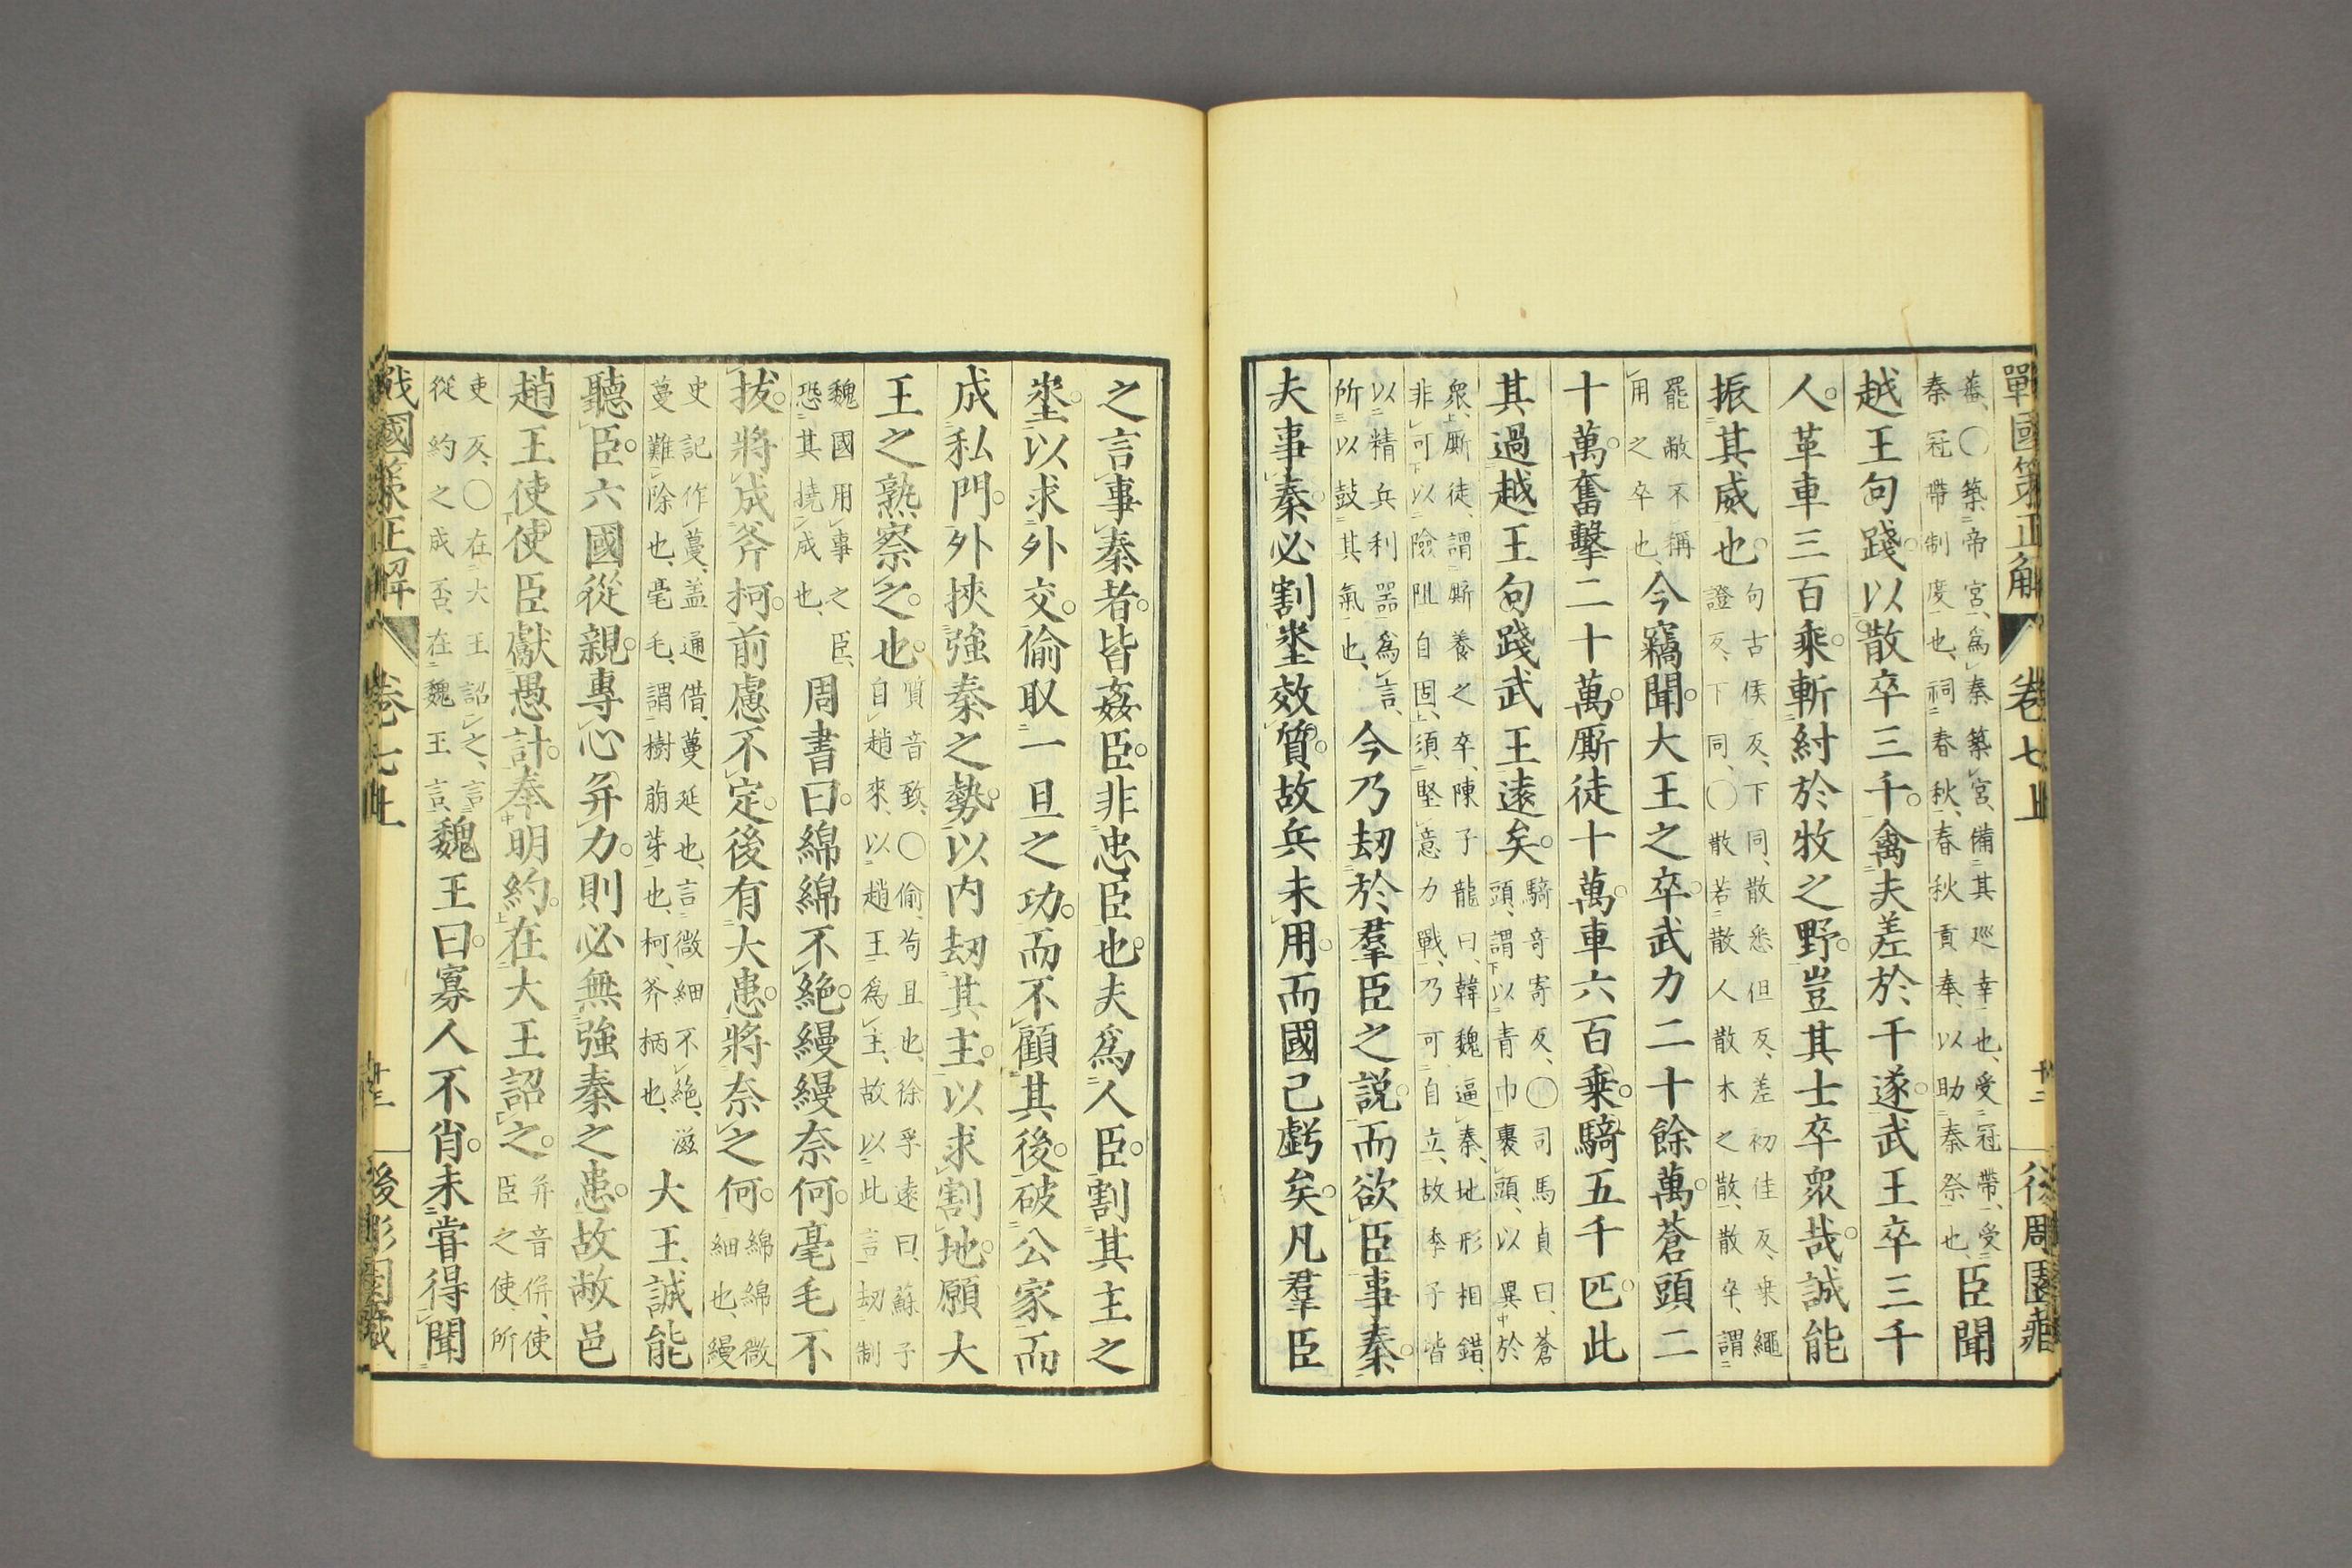 戰國策正解 卷七上 十二
藩、○築帝宮、爲秦築宮、備其巡幸也、受冠帶、受
秦冠帶制度也、祠春秋、春秋貢奉、以助秦祭也、臣聞
越王句踐以散卒三千禽夫差於干遂武王卒三千
人革車三百乘斬紂於牧之野豈其士卒衆哉誠能
振其威也句古侯反、下同、散悉但反、差初佳反、乗繩
證反、下同、○散若散人散木之散、散卒、謂
罷敝不稱
用之卒也、今竊聞大王之卒武力二十餘萬蒼頭二
十萬奮擊二十萬厮徒十萬車六百乗騎五千匹此
其過越王句踐武王遠矣騎奇寄反、○司馬貞曰、蒼
頭、謂以青巾裹頭、以異於
衆、厮徒、謂厮養之卒、陳子龍曰、韓魏逼秦、地形相錯、
非可以險阻自固、須堅意力戰、乃可自立、故季子皆
以精兵利器爲言、
所以鼓其氣也、今乃刼於羣臣之説而欲臣事秦
夫事秦必割埊效質故兵未用而國已虧矣凡羣臣
之言事秦者皆姦臣非忠臣也夫爲人臣割其主之
埊以求外交偷取一旦之功而不顧其後破公家而
成私門外挾強秦之勢以内刼其主以求割地願大
王之熟察之也質音致、○偷、苟且也、徐孚遠曰、蘇子
自趙來、以趙王爲主、故以此言刼制
魏國用事之臣、
恐其撓成也、周書曰綿綿不絶縵縵奈何毫毛不
拔將成斧柯前慮不定後有大患將奈之何綿綿微
細也、縵
史記作蔓、盖通借、蔓延也、言微細不絶、滋
蔓難除也、毫毛、謂樹萠芽也、柯、斧柄也、大王誠能
聽臣六國從親專心并力則必無強秦之患故敝邑
趙王使使臣獻愚計奉明約在大王詔之并音併、使
臣之使、所
吏反、○在大王詔之、言
從約之成否、在魏王言、魏王曰寡人不肖未甞得聞
戰國策正解 卷七上 十三